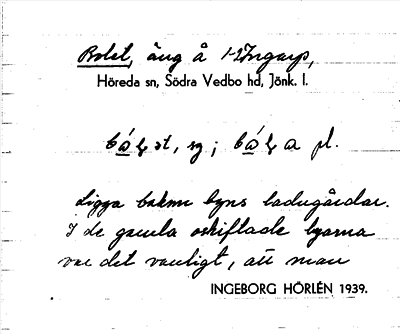 Bolet, äng å 1-2 Ingarp,
Höreda sn, Södra Vedbo hd, Jönk. l.
sg; pl.
Ligga bakom byns ladugårdar.
I de gamla oskiftade byarna
var det vanligt, att man
INGEBORG HÖRLÉN 1939.